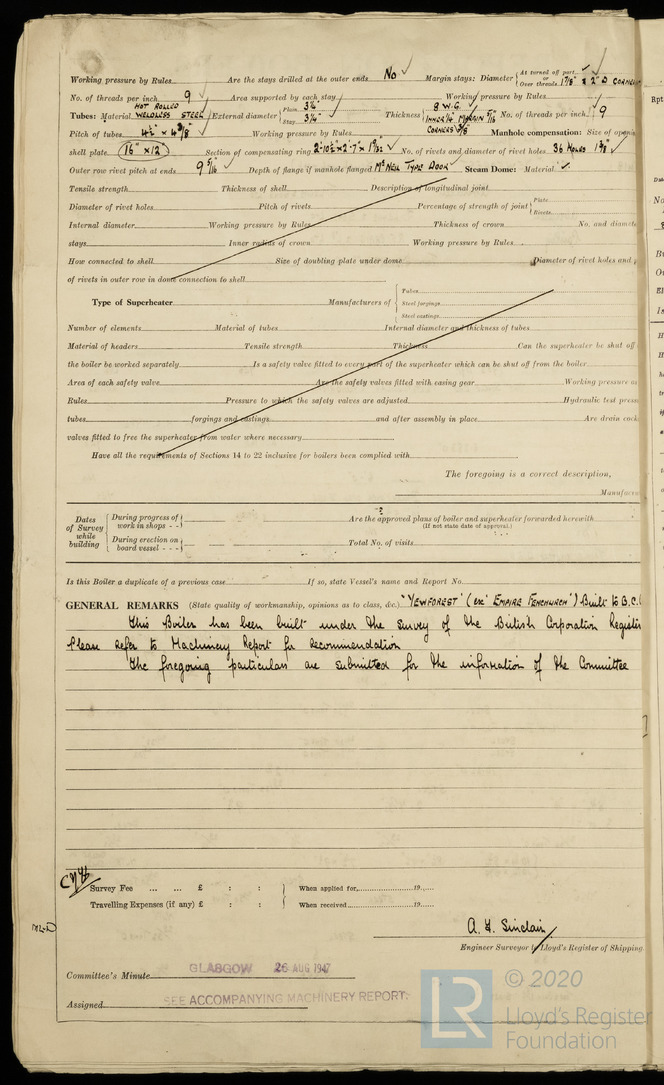 Working pressure by Rules Are the stays drilled at the outer ends No Margin stays: Diameter { At turned off part, or Over threads 1 7/8" & 2" D CORNERS
No. of threads per inch 9 Area supported by each stay Working pressure by Rules
Tubes: Material HOT ROLLED WELDLESS STEEL External diameter { Plain 3¼" Stay 3¼" Thickness { 8 W.G. INNER ¼" MARGIN 5/16 CORNERS 3/8 No. of threads per inch 9
Pitch of tubes 4½" x 4 3/8" Working pressure by Rules Manhole compensation: Size of
shell plate 16" x 12" Section of compensating ring No. of rivets and diameter of rivet holes 36 HOLES
Outer row rivet pitch at ends 9 5/16" Depth of flange if manhole flanged McNEIL TYPE DOOR Steam Dome: Material
Tensile strength Thickness of shell Description of longitudinal joint
Diameter of rivet holes Pitch of rivets Percentage of strength of joint { Plate Rivets
Internal diameter Working pressure by Rules Thickness of crown No. and
stays Inner radius of crown Working pressure by Rules
How connected to shell Size of doubling plate under dome Diameter of rivet holes and
of rivets in outer row in dome connection to shell
Type of Superheater Manufacturers of { Tubes Steel forgings Steel castings
Number of elements Material of tubes Internal diameter and thickness of tubes
Material of headers Tensile strength Thickness Can the superheater be shut off
the boiler be worked separately Is a safety valve fitted to every part of the superheater which can be shut off from the boiler
Area of each safety valve Are the safety valves fitted with easing gear Working pressure as
Rules Pressure to which the safety valves are adjusted Hydraulic test
tubes forgings and castings and after assembly in place Are drain
valves fitted to free the superheater from water where necessary
Have all the requirements of Sections 14 to 22 inclusive for boilers been complied with
The foregoing is a correct description,
Dates of Survey while building { During progress of work in shops - - Are the approved plans of boiler and superheater forwarded herewith
(If not state date of approval.)
During erection on board vessel - - - Total No. of visits
Is this Boiler a duplicate of a previous case If so, state Vessel's name and Report No.
GENERAL REMARKS (State quality of workmanship, opinions as to class, &c.) "YEWFOREST" (ex "EMPIRE FENCHURCH") Built to B.C.
This Boiler has been built under the survey of the British Corporation
Please refer to Machinery Report for recommendation
The foregoing particulars are submitted for the information of the Committee
Survey Fee ... ... £ : : When applied for, 19
Travelling Expenses (if any) £ : : When received, 19
A. F. Sinclair
Engineer Surveyor to Lloyd's Register of Shipping.
Committee's Minute GLASGOW 26 AUG 1947
Assigned SEE ACCOMPANYING MACHINERY REPORT.
LR © 2020
Lloyd's Register
Foundation